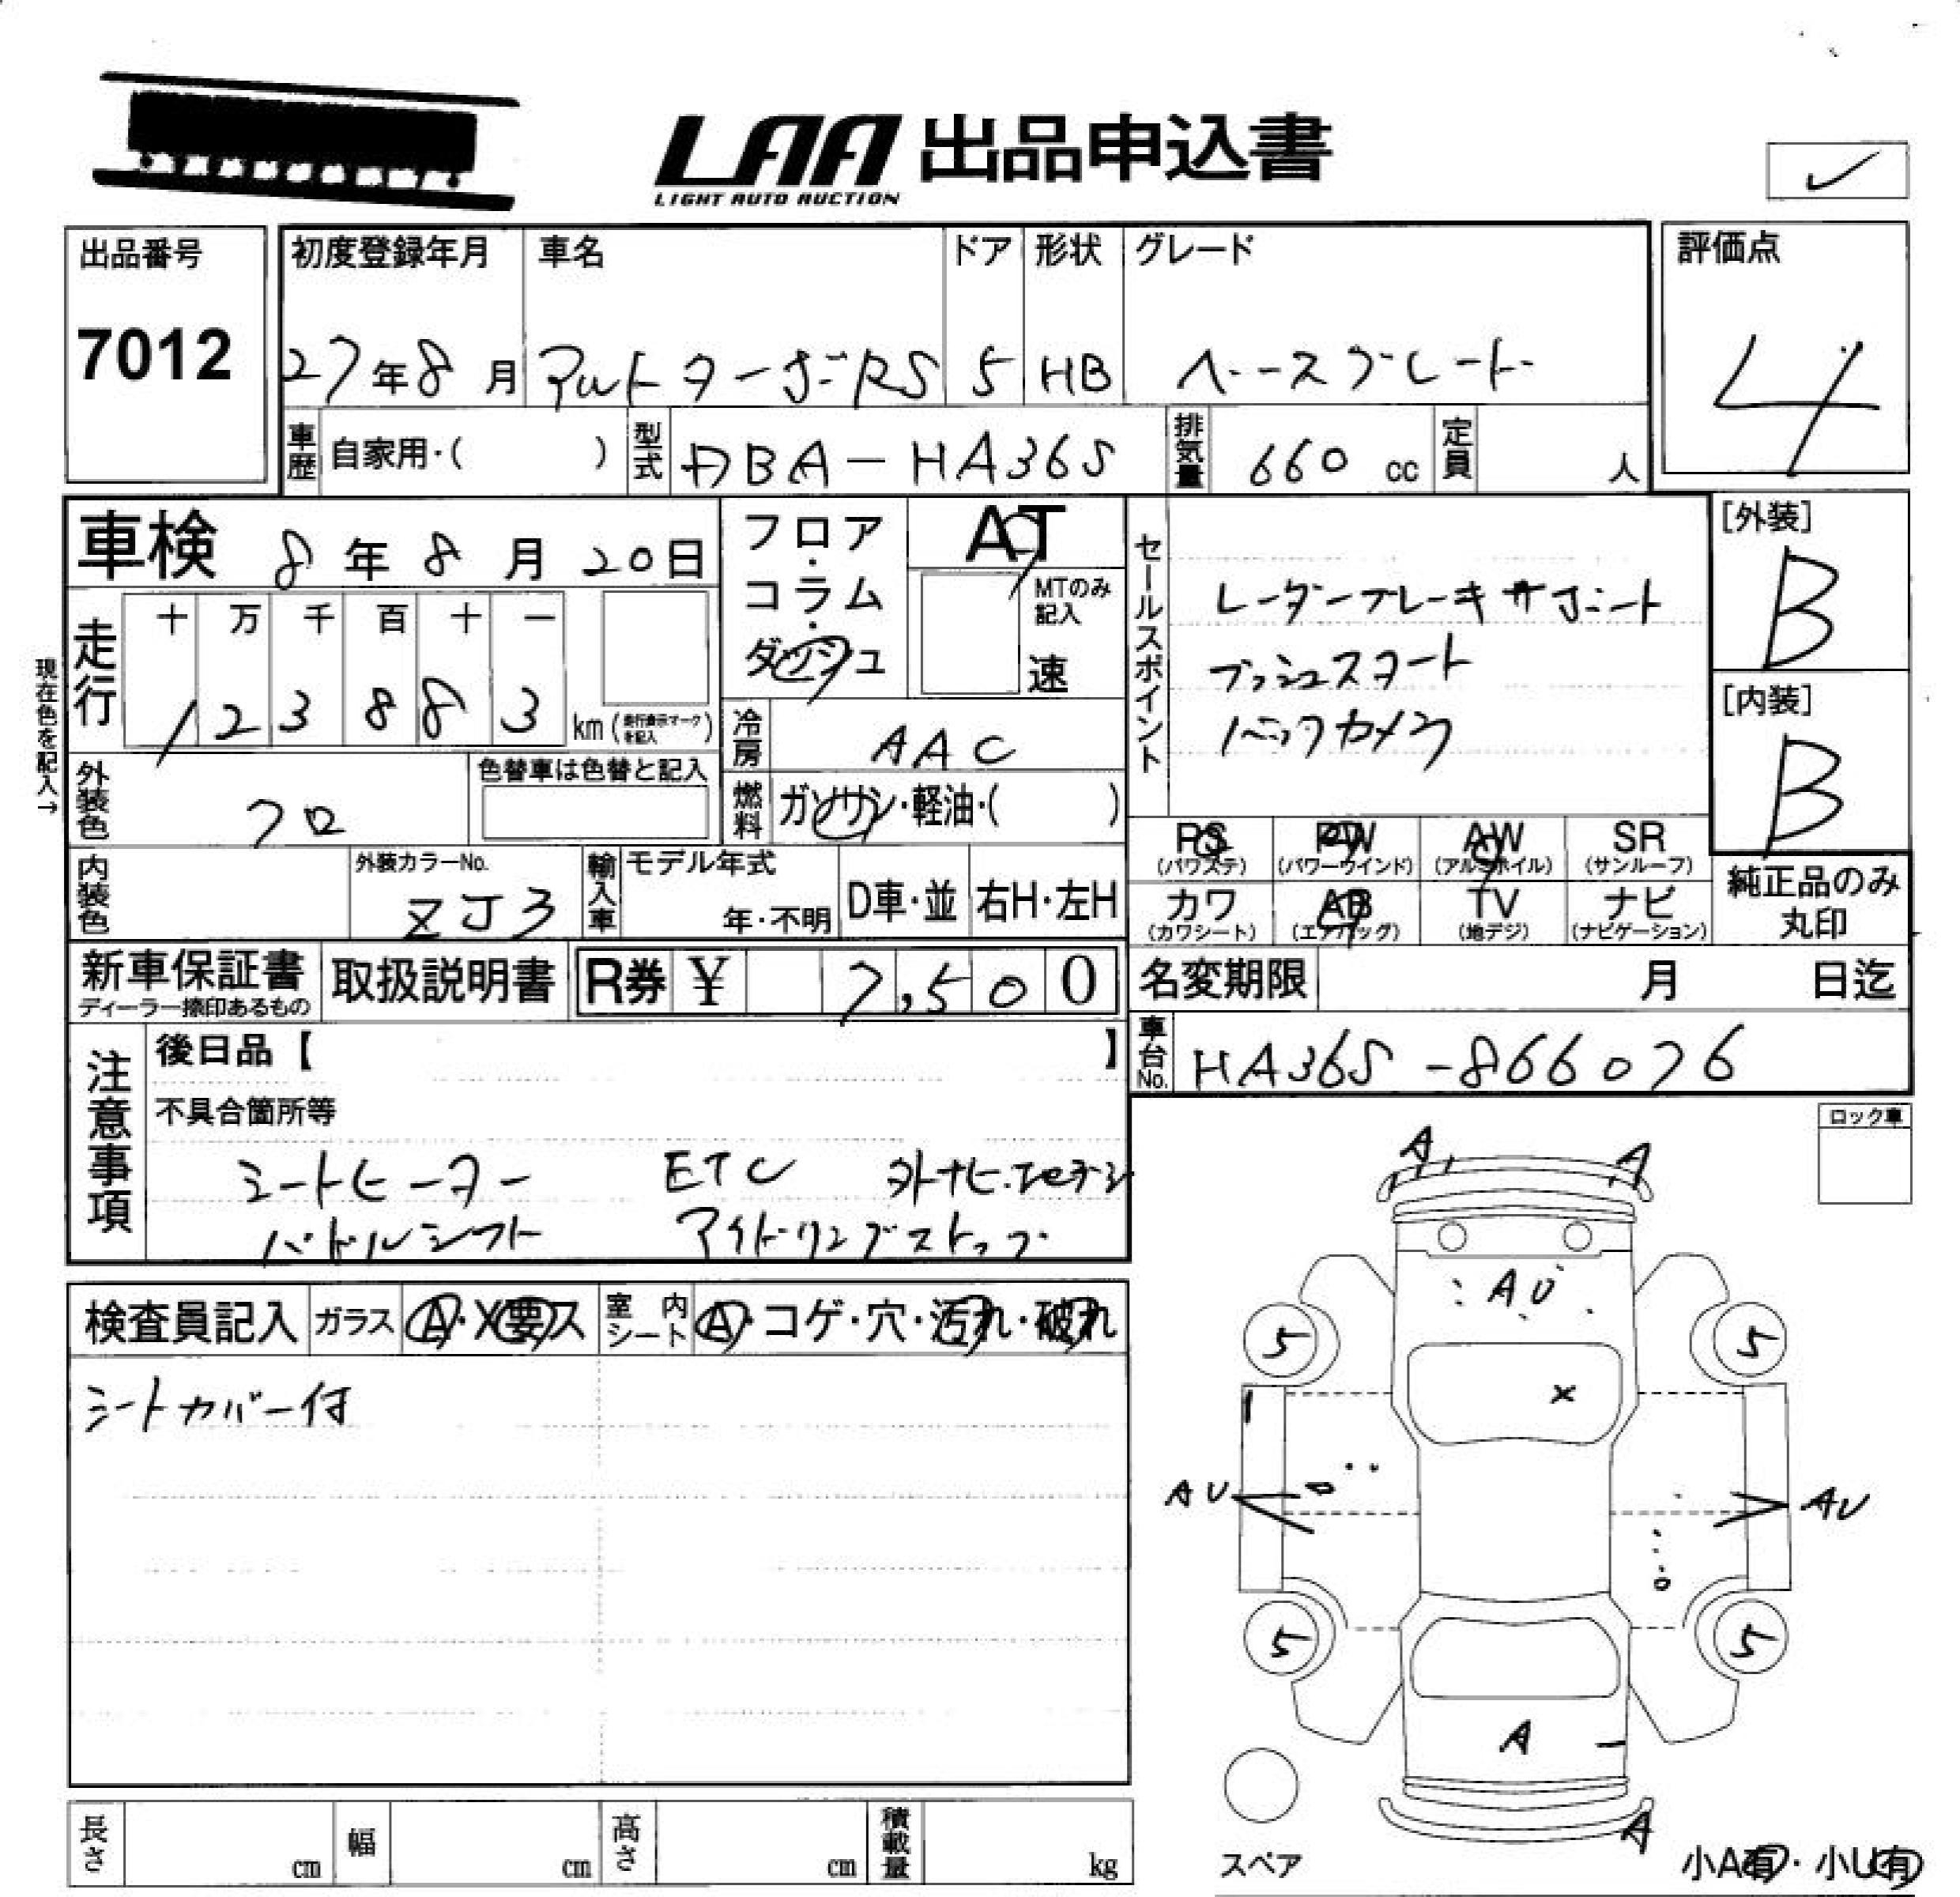 LAA 出品申込書
LIGHT AUTO AUCTION
出品番号
7012
初度登録年月 車名 ドア 形状 グレード
27年8月 アルトターボRS 5 HB ベースグレード
評価点
4
車歴 自家用・( ) 型式 DBA-HA36S 排気量 660 cc 定員 人
車検 8年8月20日
フロア・コラム・ダッシュ
AT
MTのみ記入
速
現在色を記入→
走行 十 万 千 百 十 一
1 2 3 8 8 3 km (走行表示マークを記入)
冷房 AAC
外装色 クロ
色替車は色替と記入
燃料 ガソリン・軽油・( )
セールスポイント
レーダーブレーキサポート
プッシュスタート
バックカメラ
[外装]
B
[内装]
B
PS PW AW SR
(パワステ) (パワーウインド) (アルミホイル) (サンルーフ)
カワ AB TV ナビ
(カワシート) (エアバッグ) (地デジ) (ナビゲーション)
純正品のみ
丸印
内装色
外装カラーNo.
ZJ3
輸入車 モデル年式
年・不明 D車・並 右H・左H
新車保証書
ディーラー捺印あるもの
取扱説明書 R券 ¥ 7,500
名変期限 月 日迄
車台No. HA36S-866076
注意事項
後日品【 】
不具合箇所等
シートヒーター ETC 外ナビ.
パドルシフト アイドリングストップ
ロック車
検査員記入 ガラス A・X要ス 室内シート A・コゲ・穴・汚れ・破れ
シートカバー付
A A
AU
5 5
X
AU AU
5 5
A
A
スペア
小A有・小U有
長さ cm 幅 cm 高さ cm 積載量 kg